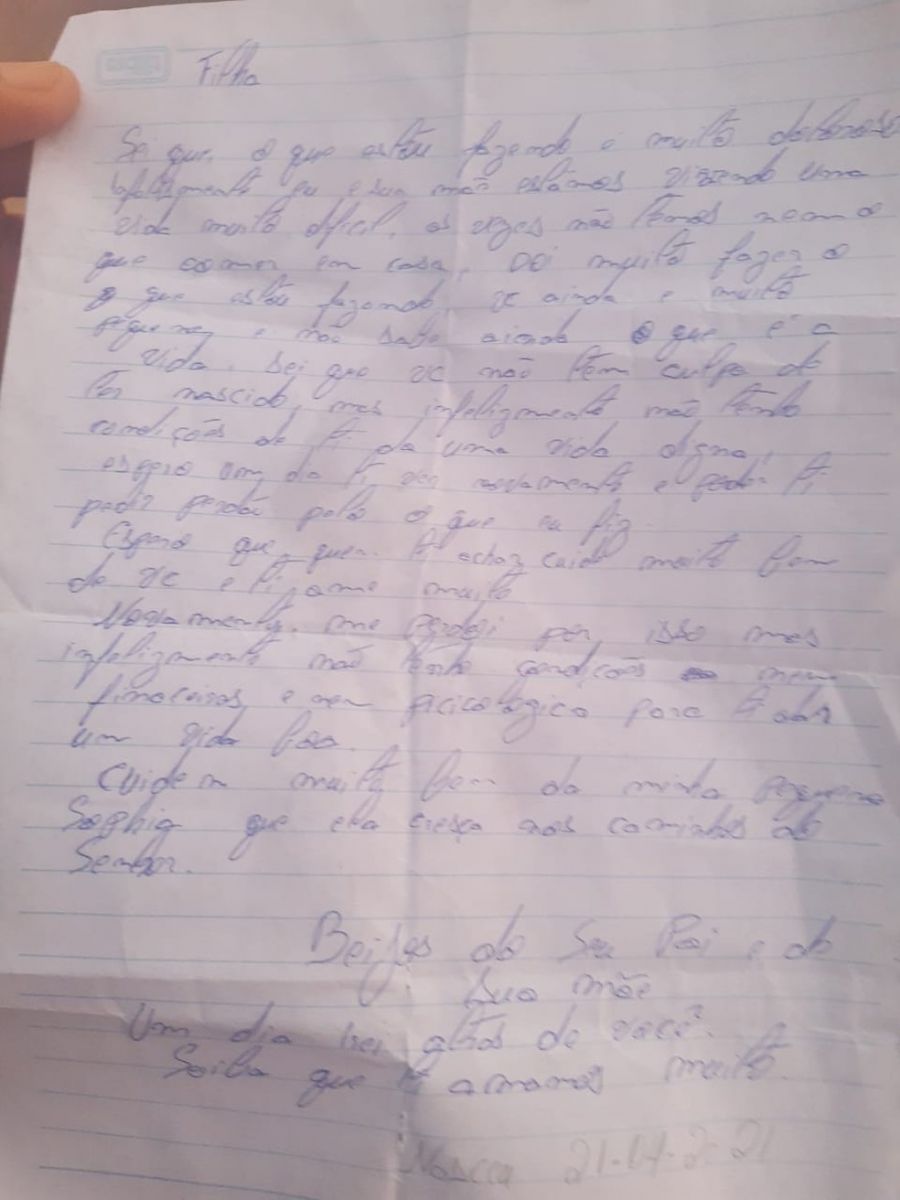 Filha
Sei que, o que estou fazendo é muito doloroso
infelizmente eu e sua mãe estamos vivendo uma
vida muito dificil, as vezes não temos nem o
que comer em casa, Doi muito fazer o
que estou fazendo, vc ainda e muito
pequena e não sabe ainda o que é a
vida. Sei que vc não tem culpa de
ter nascido, mas infelizmente não tenho
condições de ti da uma vida digna,
espero um dia ti ver novamente e poder ti
pedir perdão pelo o que eu fiz.
Espero que, quem ti achar cuide muito bem
de vc e ti ame muito
Novamente, me perdoi por, isso mas
infelizmente não tenho condições nem
finaceiras e nem picicologico para ti dar
um vida boa.
Cuidem muito bem da minha pequena
Sophia que ela cresça nos caminhos do
Senhor.
Beijos do Seu Pai e da
Sua mãe
Um dia irei atras de você.
Saiba que ti amamos muito.
Nasceu 21-04-2021